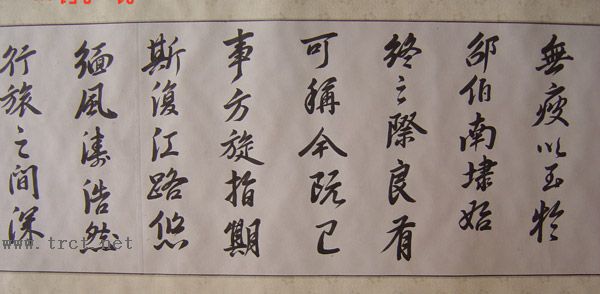 無疲以至於
邵伯南埭始
終之際良有
可稱今既已
事方旋指期
斯復江路悠
緬風濤浩然
行旅之間深
www.trct.net